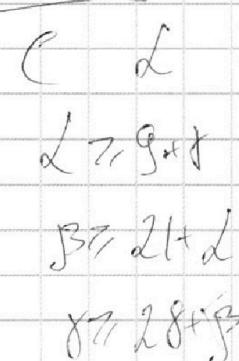 ( α
α ≥ 9+γ
β ≥ 21+α
γ ≥ 28+β